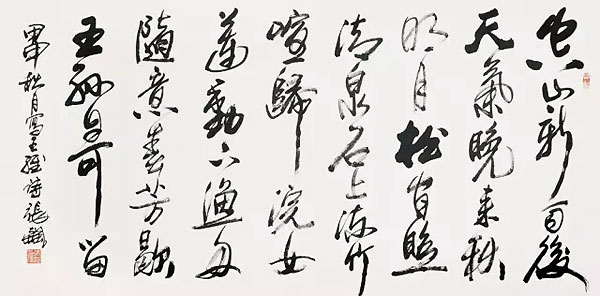 空山新雨後
天氣晚來秋
明月松間照
清泉石上流竹
喧歸浣女
蓮動下漁舟
隨意春芳歇
王孫自可留
甲申秋月寫王維詩張